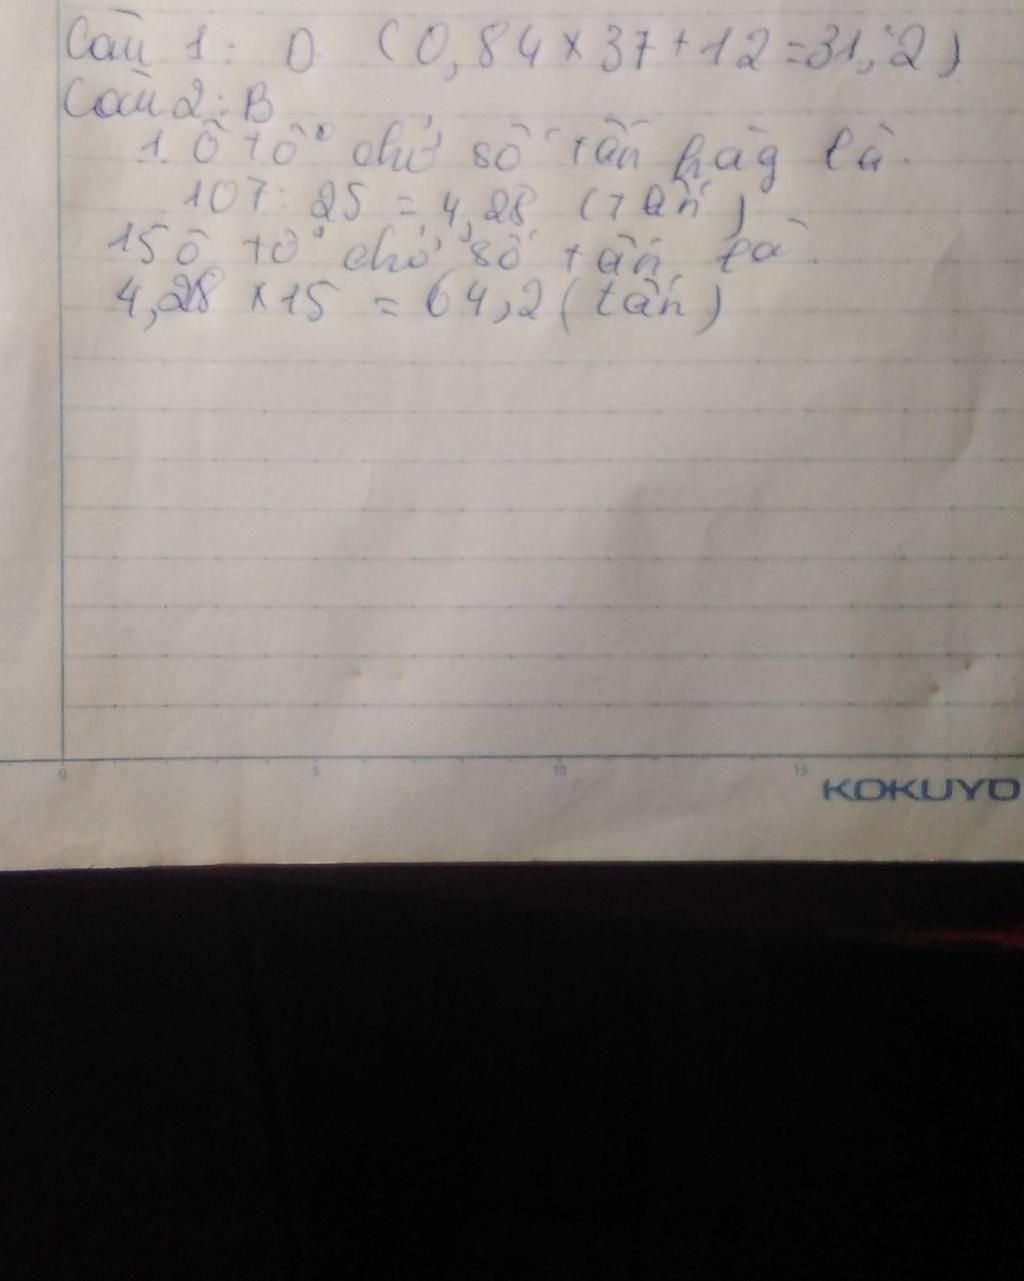 Câu 1: D (0,84 x 37 + 12 = 31,2)
Câu 2: B
1 ô tô chở số tấn hàg là
107 : 25 = 4,28 (tấn)
15 ô tô chở số tấn là
4,28 x 15 = 64,2 (tấn)
0 5 10 15
KOKUYO